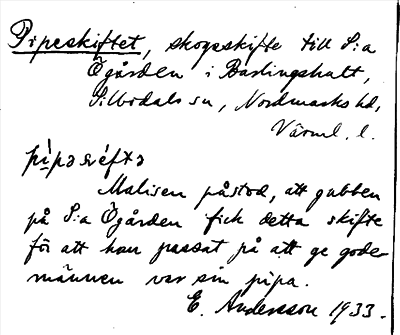 Pipeskiftet, skogsskifte till S:a
Ögården i Barlingshult,
Silbodals sn, Nordmarks hd,
Värml. l.
Malisen påstod, att gubben
på S:a Ögården fick detta skifte
för att han passat på att ge gode-
männen var sin pipa.
E. Andersson 1933.